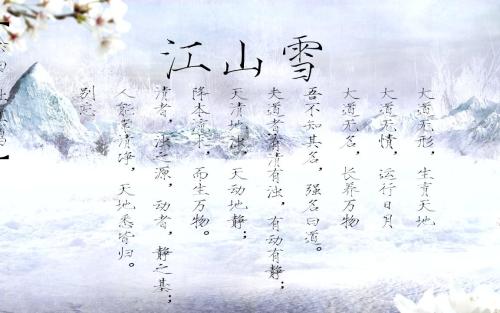 江山雪
大道无形，生育天地
大道无情，运行日月
大道无名，长养万物
吾不知其名，强名曰道。
夫道者有清有浊，有动有静；
天清地浊，天动地静；
降本流末，而生万物。
清者，浊之源，动者，静之基；
人能常清净，天地悉皆归。